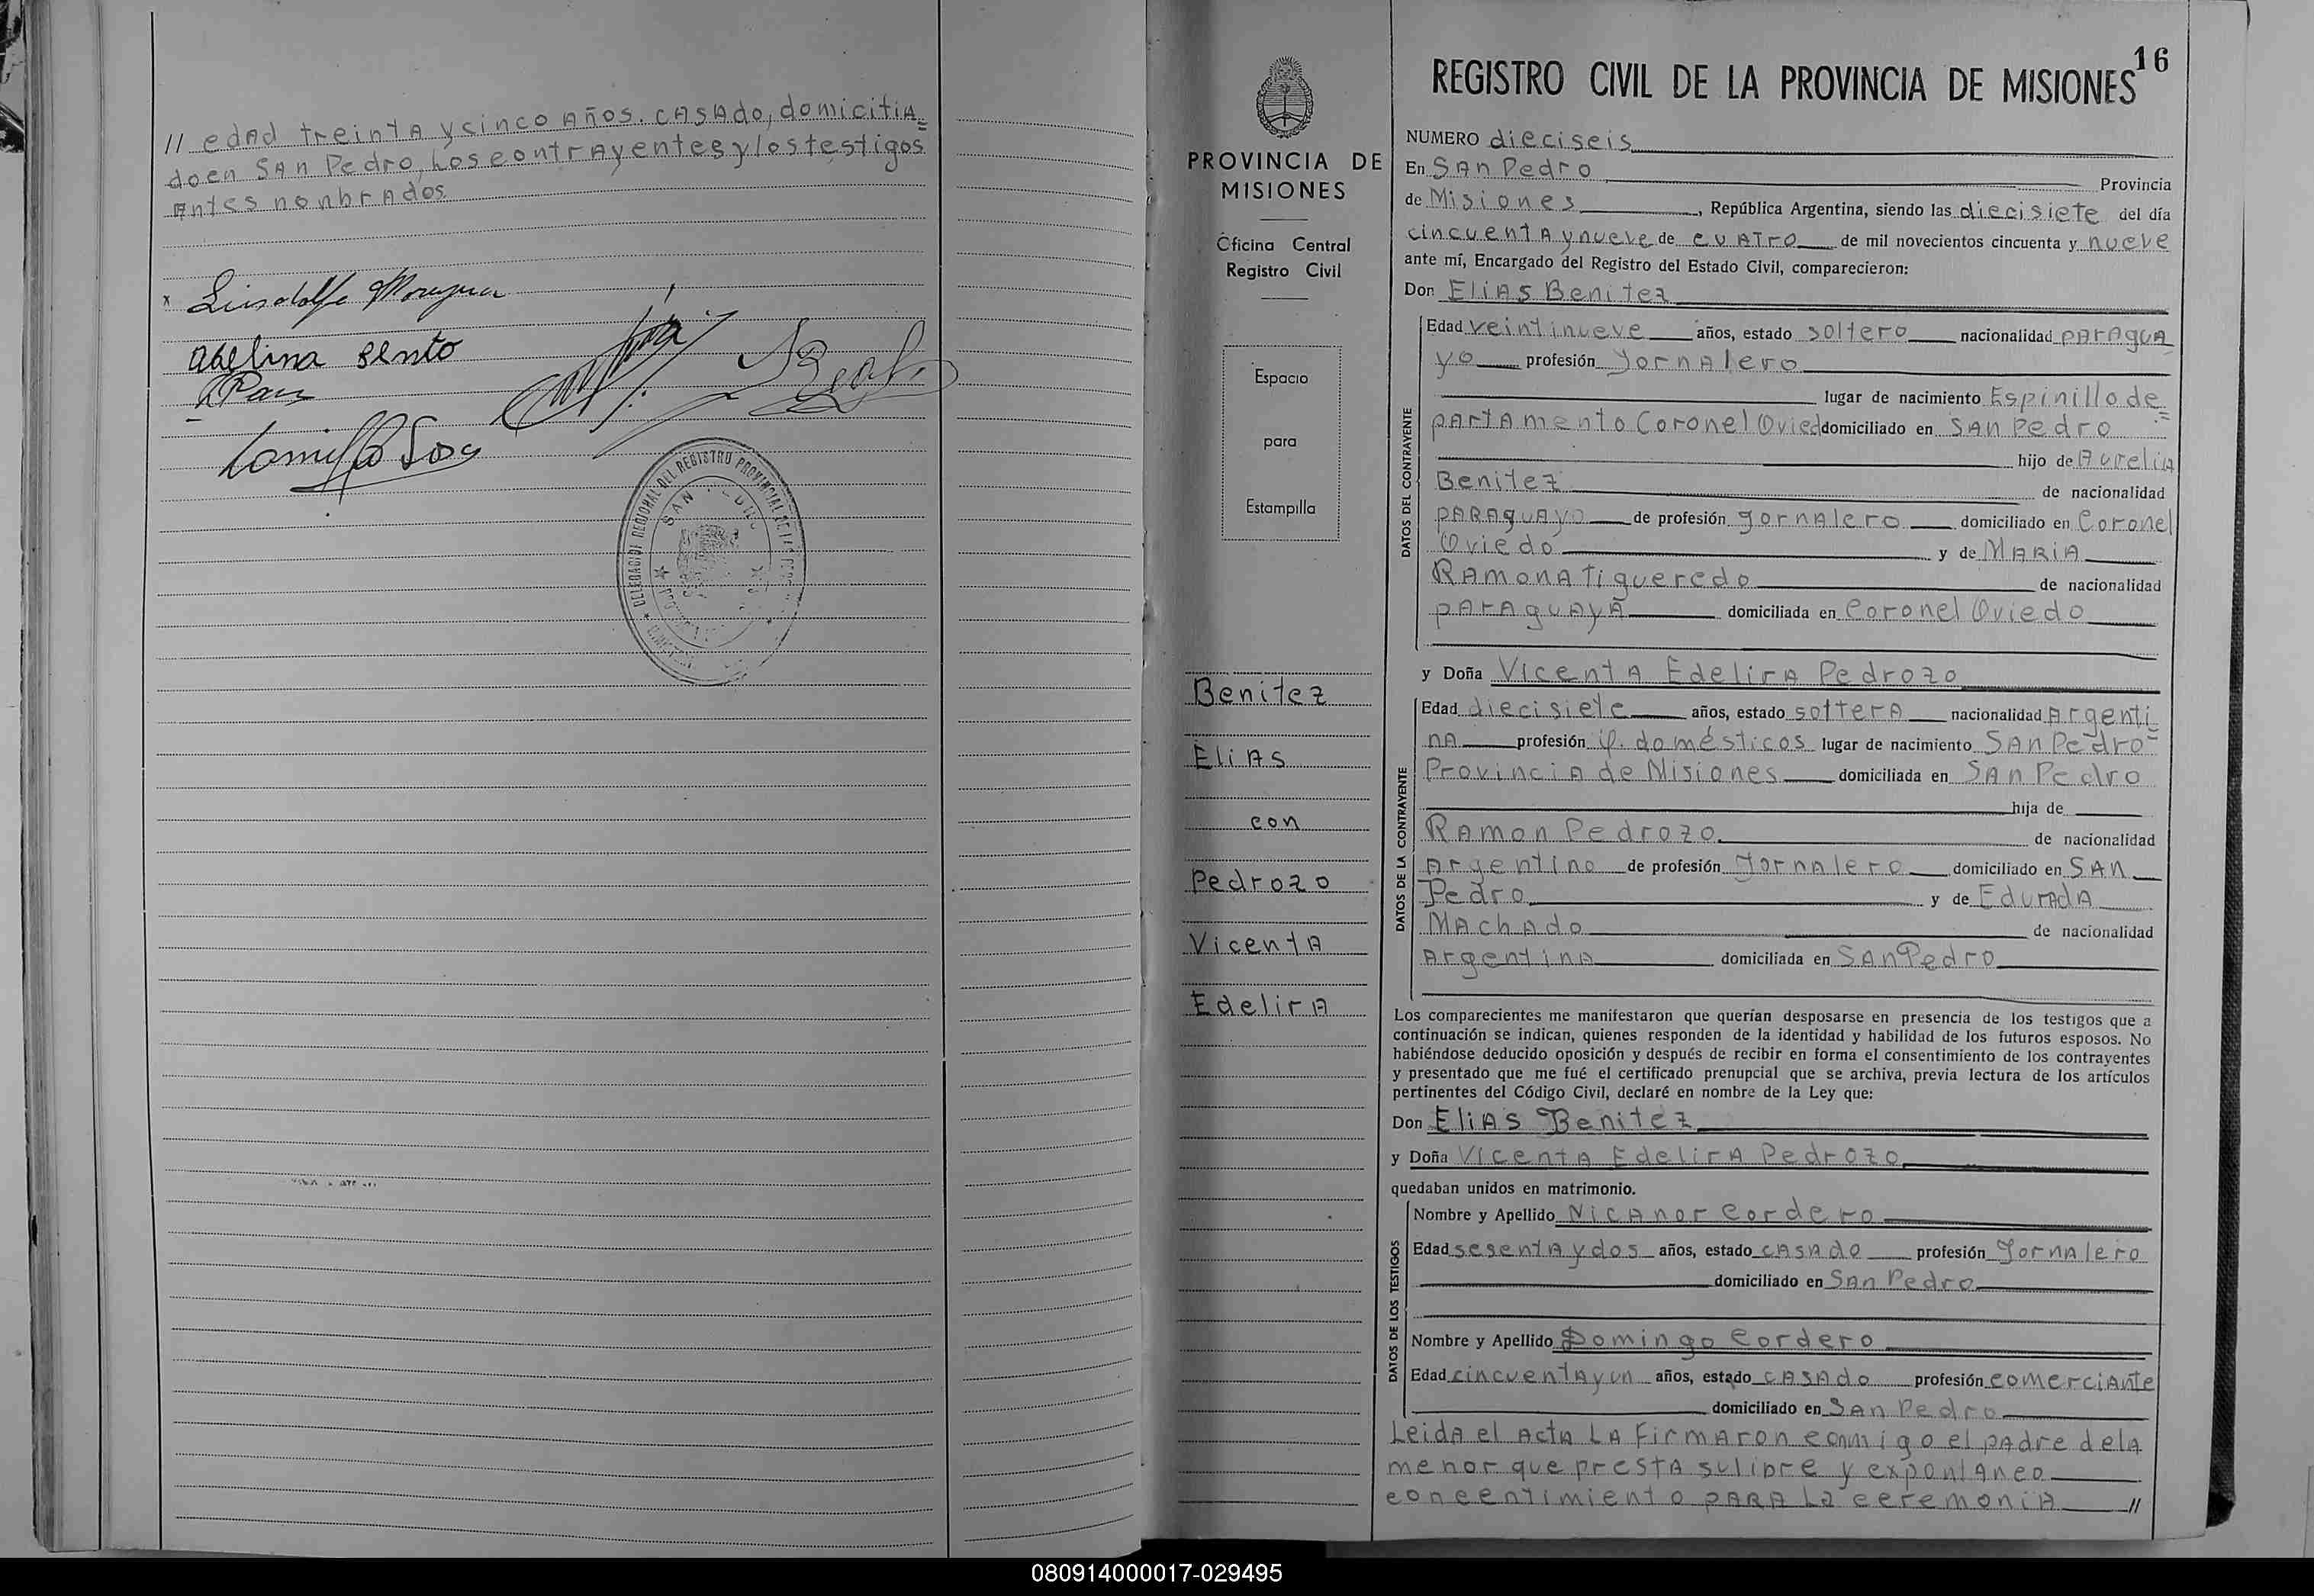 // edad treinta y cinco años. casado, domicitia=
do en San Pedro, Los contrayentes y los testigos
antes nonbrados
x
Abelina Bento
16
REGISTRO CIVIL DE LA PROVINCIA DE MISIONES
PROVINCIA DE
MISIONES
Oficina Central
Registro Civil
Espacio
para
Estampilla
Benitez
Elias
con
Pedrozo
Vicenta
Edelira
NUMERO dieciseis
En San Pedro Provincia
de Misiones, República Argentina, siendo las diecisiete del día
cincuenta y nueve de cuatro de mil novecientos cincuenta y nueve
ante mí, Encargado del Registro del Estado Civil, comparecieron:
Don Elias Benitez
DATOS DEL CONTRAYENTE
Edad veintinueve años, estado soltero nacionalidad paragua
yo profesión Jornalero
lugar de nacimiento Espinillo de=
partamento Coronel Ovied domiciliado en San Pedro
hijo de Aurelia
Benitez de nacionalidad
paraguayo de profesión jornalero domiciliado en Coronel
Oviedo y de Maria
Ramona Tigueredo de nacionalidad
paraguaya domiciliada en Coronel Oviedo
y Doña Vicenta Edelira Pedrozo
DATOS DE LA CONTRAYENTE
Edad diecisiete años, estado soltera nacionalidad Argenti=
na profesión q. domésticos lugar de nacimiento San Pedro
Provincia de Misiones domiciliada en San Pedro
hija de
Ramon Pedrozo de nacionalidad
Argentino de profesión Jornalero domiciliado en San
Pedro y de Edurada
Machado de nacionalidad
Argentina domiciliada en San Pedro
Los comparecientes me manifestaron que querían desposarse en presencia de los testigos que a
continuación se indican, quienes responden de la identidad y habilidad de los futuros esposos. No
habiéndose deducido oposición y después de recibir en forma el consentimiento de los contrayentes
y presentado que me fué el certificado prenupcial que se archiva, previa lectura de los artículos
pertinentes del Código Civil, declaré en nombre de la Ley que:
Don Elias Benitez
y Doña Vicenta Edelira Pedrozo
quedaban unidos en matrimonio.
DATOS DE LOS TESTIGOS
Nombre y Apellido Nicanor Cordero
Edad sesenta y dos años, estado casado profesión Jornalero
domiciliado en San Pedro
Nombre y Apellido Domingo Cordero
Edad cincuenta y un años, estado casado profesión comerciante
domiciliado en San Pedro
Leida el acta la firmaron conmigo el padre de la
menor que presta su libre y expontaneo
concentimiento para la ceremonia //
080914000017-029495